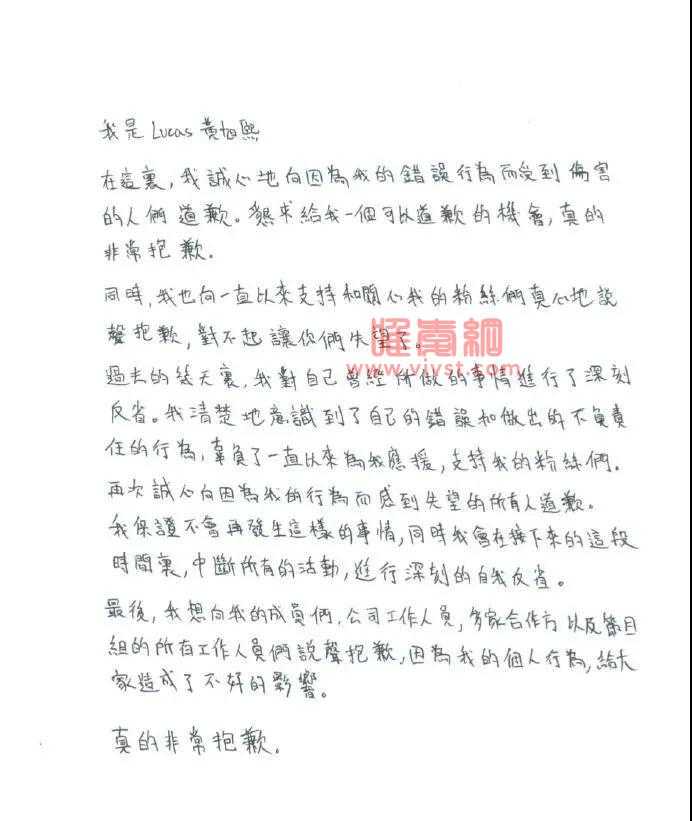 我是 Lucas 黃旭熙
在這裏，我誠心地向因為我的錯誤行為而受到傷害
的人們道歉。懇求給我一個可以道歉的機會，真的
非常抱歉．
同時，我也向一直以來支持和關心我的粉絲們真心地說
聲抱歉，對不起讓你們失望了。
www.vjyst.com
過去的幾天裏，我對自己曾經所做的事情進行了深刻
反省。我清楚地意識到了自己的錯誤和做出的不負責
任的行為，辜負了一直以來為我應援，支持我的粉絲們．
再次誠心向因為我的行為而感到失望的所有人道歉。
我保證不會再發生這樣的事情，同時我會在接下來的這段
時間裏，中斷所有的活動，進行深刻的自我反省。
最後，我想向我的成員們，公司工作人員，多家合作方以及節目
組的所有工作人員們說聲抱歉，因為我的個人行為，給大
家造成了不好的影響。
真的非常抱歉．